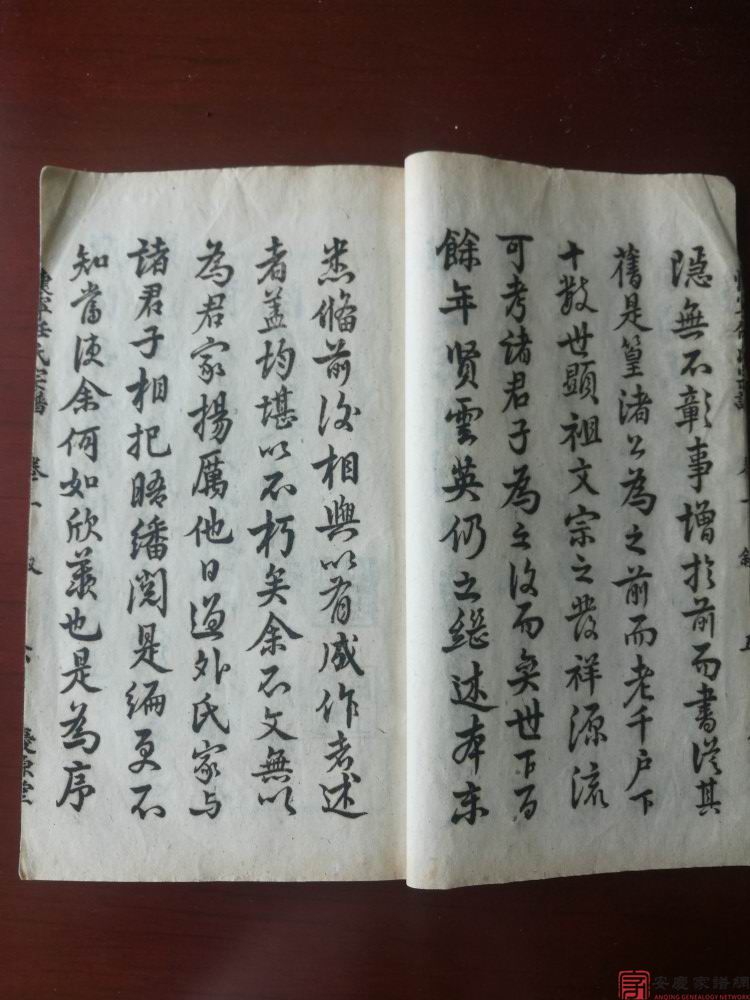 隱無不彰事增於前而書從其
舊是篁渚公為之前而老千戶下
十數世顯祖文宗之發祥源流
可考諸君子為之後而奕世下百
餘年賢雲英仍之繼述本末
悉備前後相與以有成作者述
者蓋均堪以不朽矣余不文無以
為君家揚厲他日過外氏家与
諸君子相把晤繙閱是編更不
知當使余何如欣羨也是為序
懷寧任氏宗譜 卷一 敘 六 愛源堂
安慶家譜網
ANQING GENEALOGY NETWORK